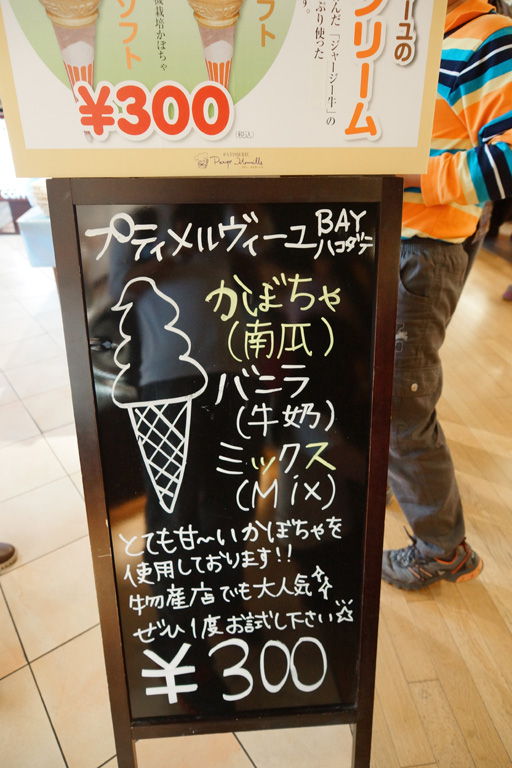 ソフト
フト
ューの
クリーム
んだ「ジャージー牛」の
ぷり使った
す。
栽培かぼちゃ
¥300
(税込)
プティメルヴィーユ BAY
ハコダテ
かぼちゃ
(南瓜)
バニラ
(牛奶)
ミックス
(Mix)
とても甘〜いかぼちゃを
使用しております!!
物産店でも大人気☆
ぜひ1度お試し下さい☆
¥300